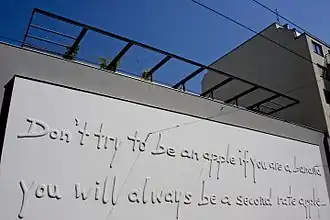 Don't try to be an apple if you are a banana
you will always be a second rate apple...